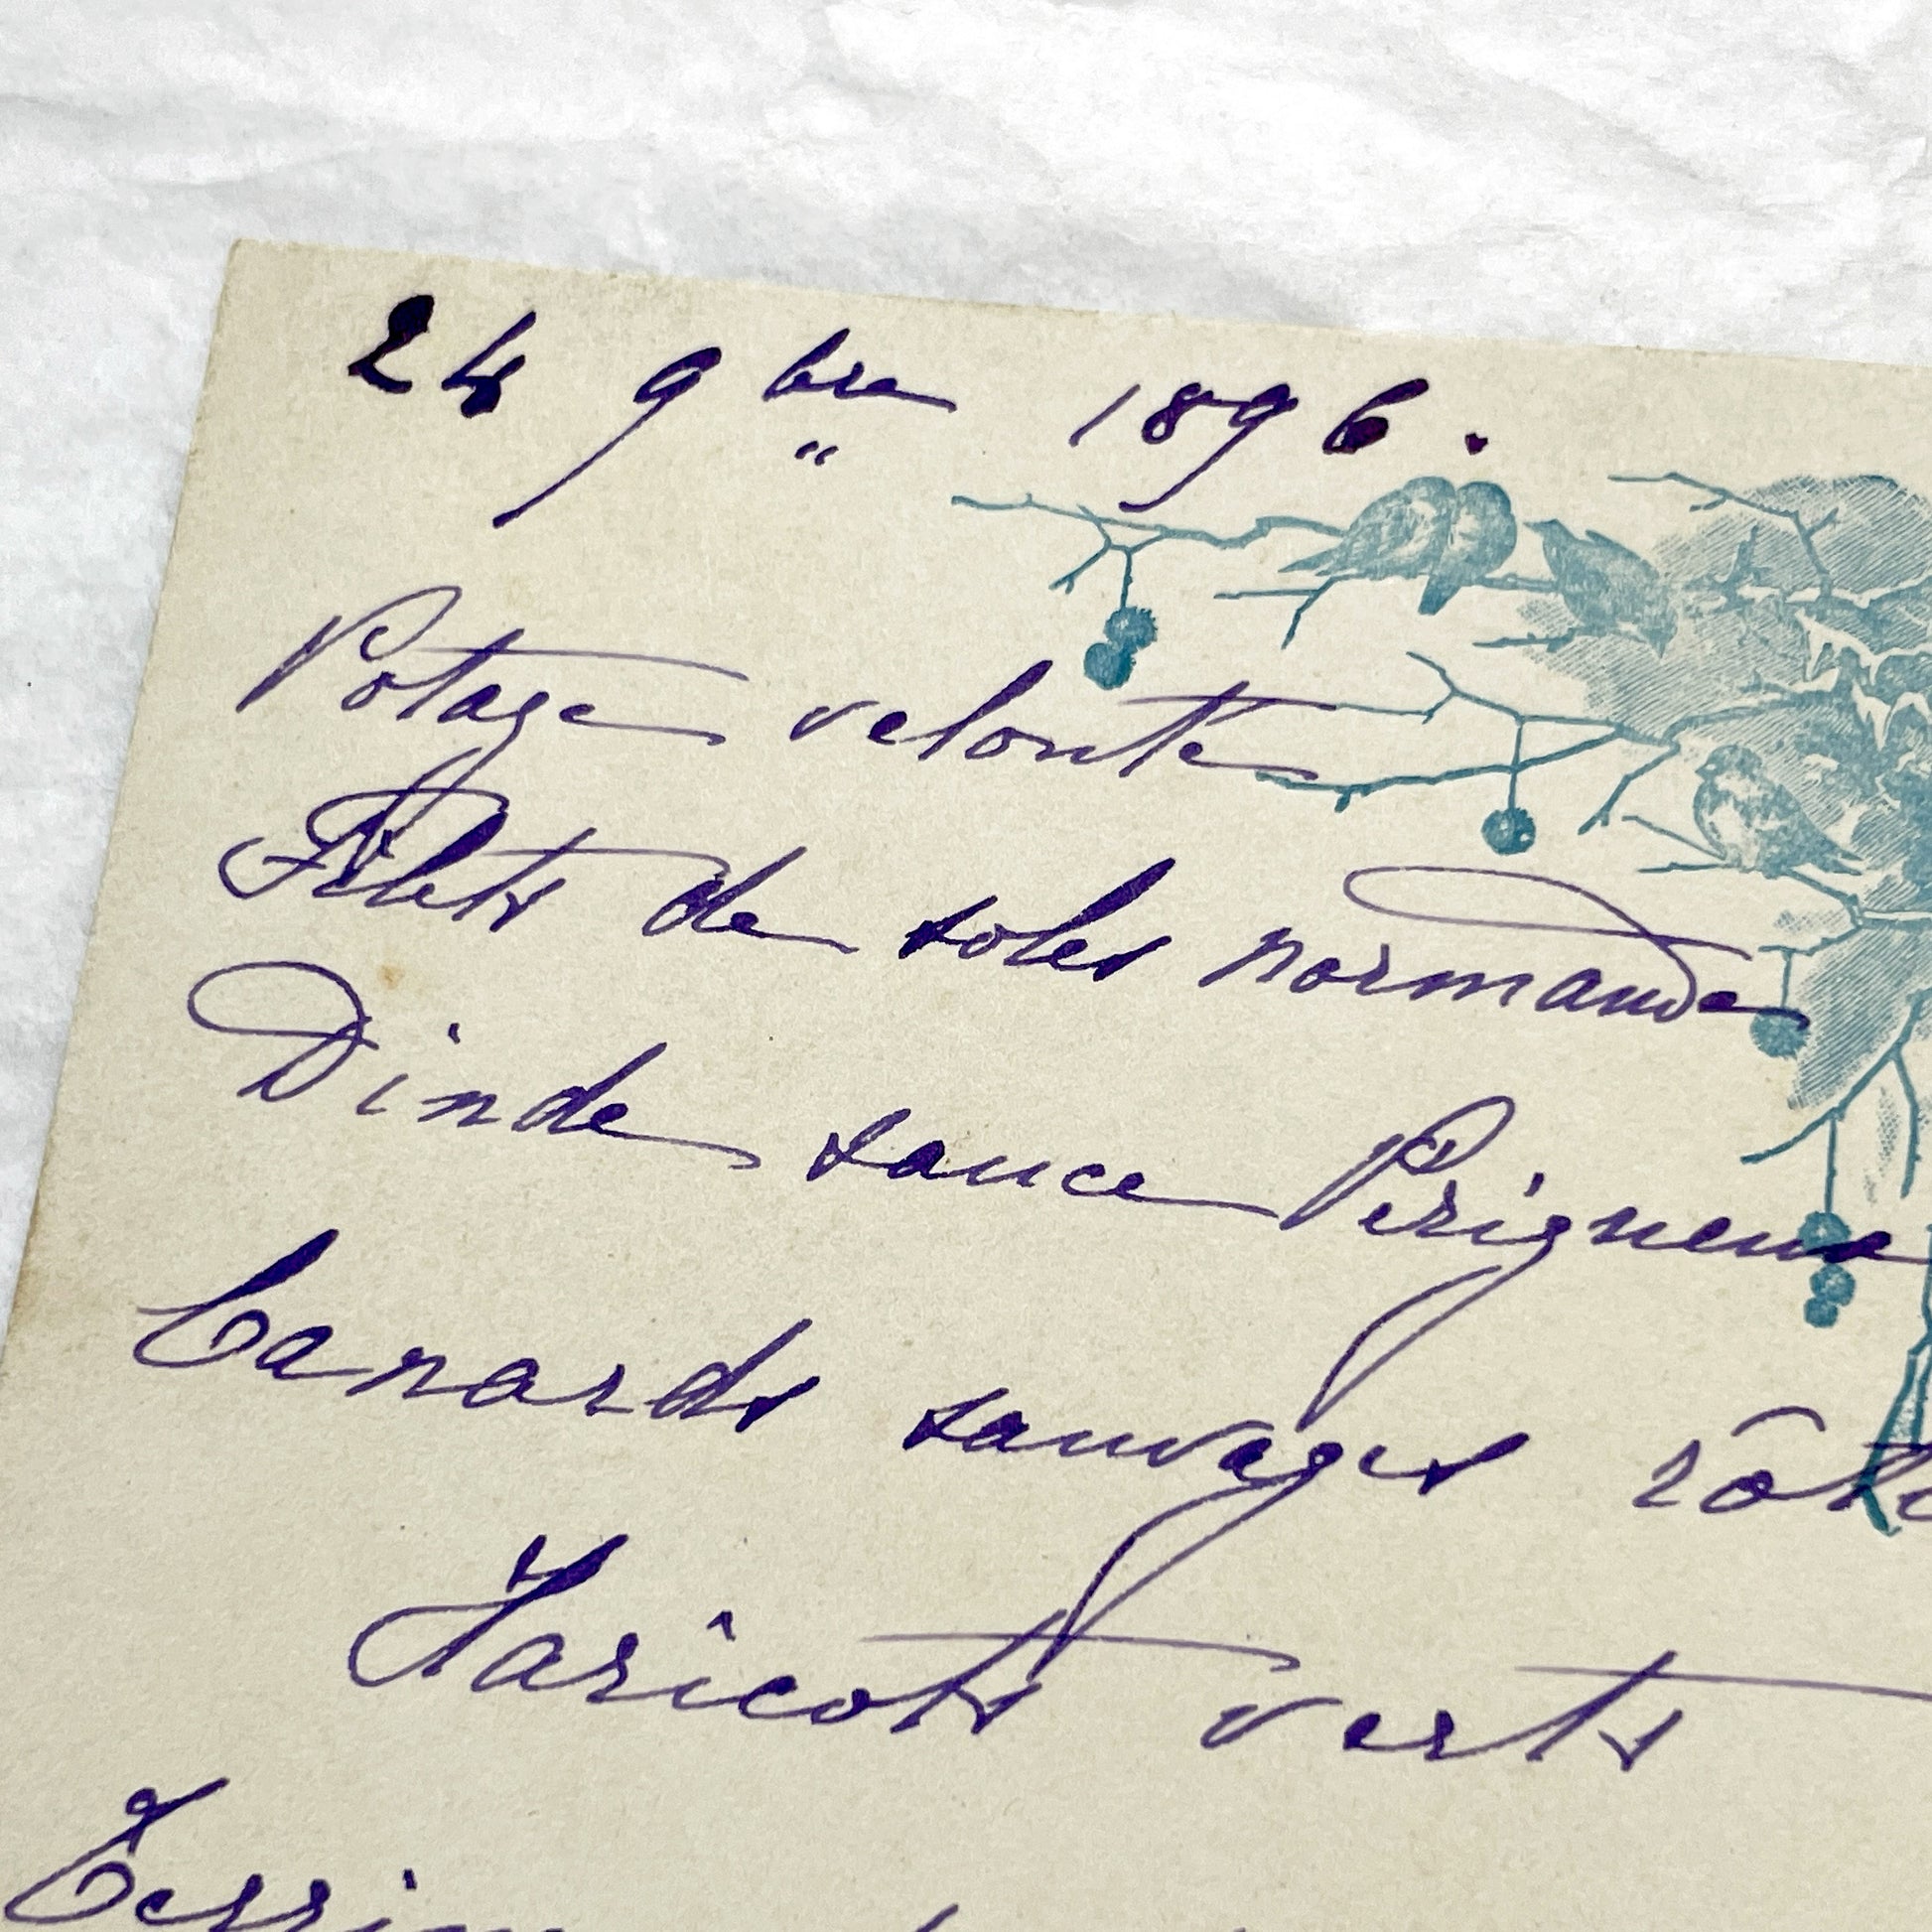 24 9bre 1896.
Potage velouté
Filets de soles normande
Dinde sauce Perigueux
Canards sauvages
Haricots verts